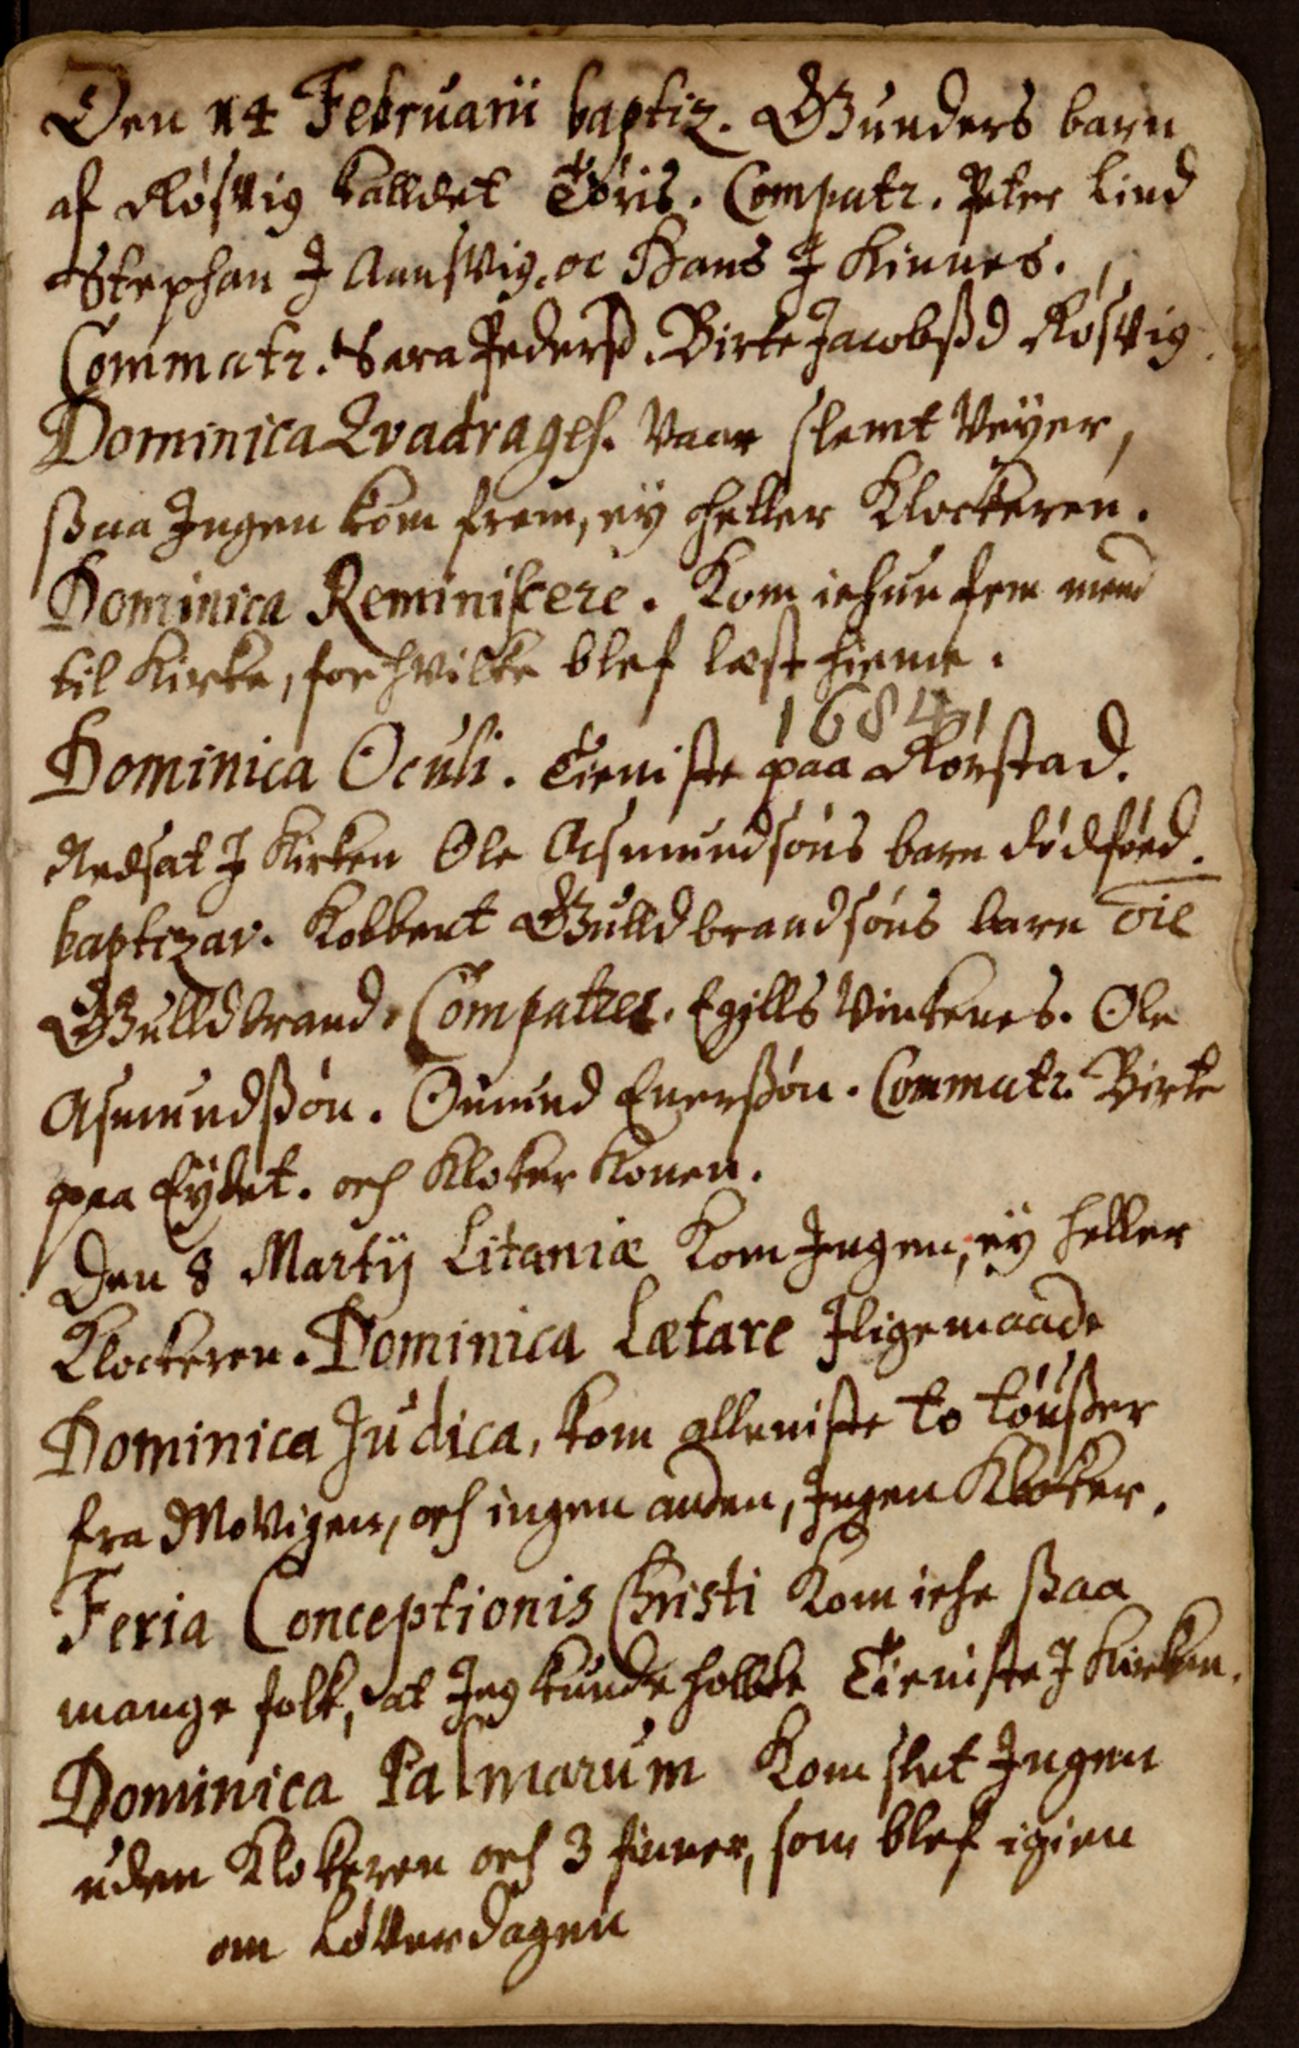 Den 14 Februarii baptiz. Gunders barn
af Røsvig kalldet Tøris. Compatr. Peter Lind
Stephan J Aunsvig. oc Hans J Kinnes.
Commatr. Sara Pedersd. Birte Jacobsßd Røsvig
Dominica Qvadrages. Vaar slemt Veÿer,
ßaa Ingen kom frem, eÿ heller Klockeren.
Dominica Reminiscere. Kom ichun fem mend
til Kirke, for hvilke blef læst hieme.
1684
Dominica Oculi. Tieniste paa Rørstad.
Nedsat J Kirken Ole Asmundsøns barn dødføed.
baptizav. Kolbent Gulldbrandsøns barn vil
Gulldbrand. Compatres. Egills Vintenes. Ole
Asmundßøn. Omund Enerßøn. Commatr. Birte
paa Eÿdet. och Kloker Konen.
Den 8 Martij Litaniæ Kom Ingen, eÿ heller
Klockeren. Dominica Lætare Iligemaade
Dominica Judica, kom alleniste to tøußer
fra Movigen, och ingen anden, Ingen Kloker.
Feria Conceptionis Christi Kom iche ßaa
mange folk, at Jeg kunde hollde Tieniste J Kirken.
Dominica Palmarum Kom slet Ingen
uden Klokeren och 3 finner, som blef igien
om Løverdagen